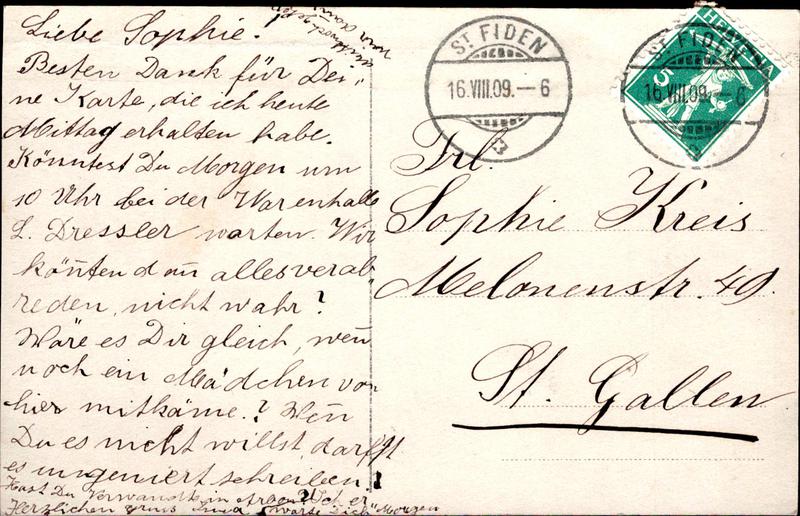 Liebe Sophie!
Besten Dank für Dei-
ne Karte, die ich heute
Mittag erhalten habe.
Könntest Du Morgen um
10 Uhr bei der Warenhalle
L. Dressler warten. Wir
kön̄ten dan̄ alles verab-
reden, nicht wahr?
Wäre es Dir gleich, wen̄
noch ein Mädchen von
hier mitkäme? Wen̄
Du es nicht willst, darfst
es ungeniert schreiben!
Hast Du Verwandte in Arbon? Ich er
Herzlichen Gruss warte Dich Morgen
ST. FIDEN
16.VIII.09.—6
HELVETIA
5
ST. FIDEN
16.VIII.09.—6
Frl.
Sophie Kreis
Melonenstr. 49.
St. Gallen